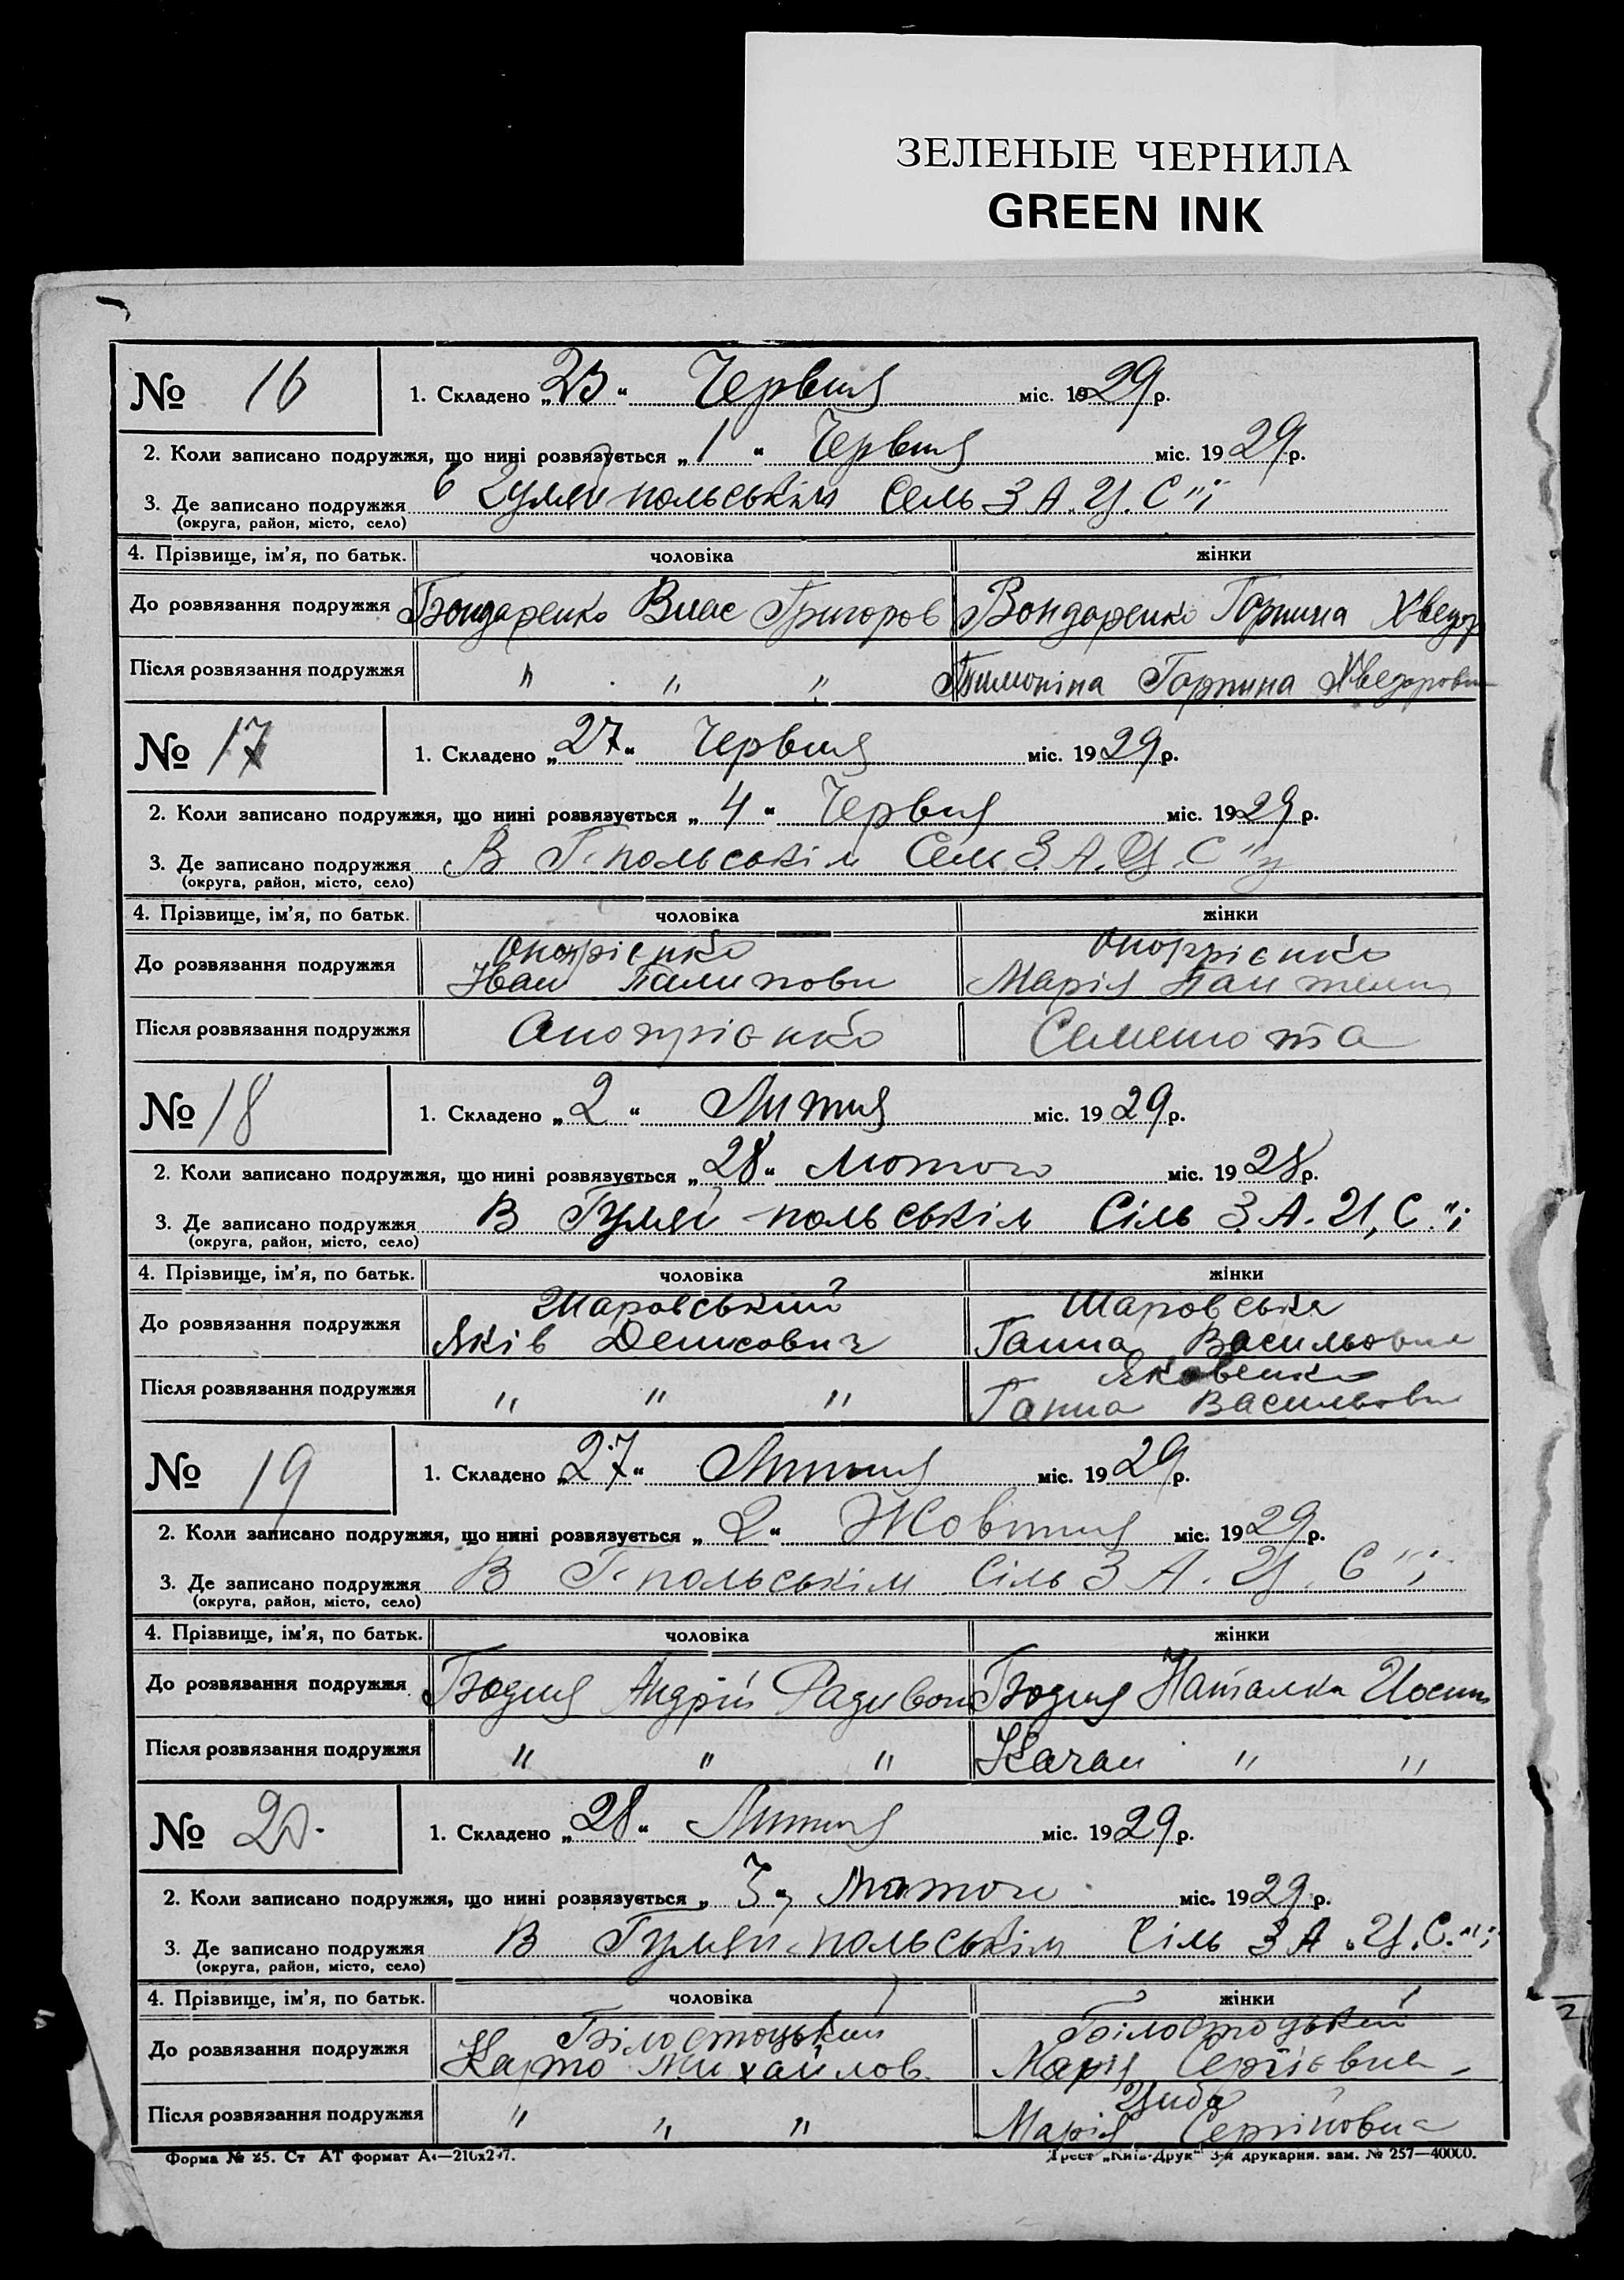 ЗЕЛЕНЫЕ ЧЕРНИЛА
GREEN INK
№ 16 1. Складено „23“ Червня міс. 1929 р.
2. Коли записано подружжя, що нині розвязується „1“ Червня міс. 1929 р.
3. Де записано подружжя в Гуляй польськім Сель З А.Ц.С“і
(округа, район, місто, село)
4. Прізвище, ім'я, по батьк. чоловіка жінки
До розвязання подружжя Бондаренко Влас Григоров Бондаренко Горпина Хведор
Після розвязання подружжя " " " Горпина Хведоровн
№ 17 1. Складено „27“ Червня міс. 1929 р.
2. Коли записано подружжя, що нині розвязується „4“ Червня міс. 1929 р.
3. Де записано подружжя В Г-польськім Сель З.А.Ц.С“у
(округа, район, місто, село)
4. Прізвище, ім'я, по батьк. чоловіка жінки
Онопрієнко Онопрієнко
До розвязання подружжя Іван Марія
Після розвязання подружжя Онопрієнко Семенота
№ 18 1. Складено „2“ Липня міс. 1929 р.
2. Коли записано подружжя, що нині розвязується „28“ Лютого міс. 1928 р.
3. Де записано подружжя В Гуляй польськім Сіль З.А.Ц.С.“і
(округа, район, місто, село)
4. Прізвище, ім'я, по батьк. чоловіка жінки
Шаровський Шаровська
До розвязання подружжя Яків Денисович Ганна Васильовна
Яковенко
Після розвязання подружжя " " " Ганна Васильовн
№ 19 1. Складено „27“ Липня міс. 1929 р.
2. Коли записано подружжя, що нині розвязується „2“ Жовтня міс. 1929 р.
3. Де записано подружжя В Г-польськім Сіль З А.Ц.С“і
(округа, район, місто, село)
4. Прізвище, ім'я, по батьк. чоловіка жінки
До розвязання подружжя Бодня Андрій Радивон Бодня Наталка Йосип
Після розвязання подружжя " " " Качан " "
№ 20. 1. Складено „28“ Липня міс. 1929 р.
2. Коли записано подружжя, що нині розвязується „3“ Лютого міс. 1929 р.
3. Де записано подружжя В Гуляй-польськім Сіль З А.Ц.С.“і
(округа, район, місто, село)
4. Прізвище, ім'я, по батьк. чоловіка жінки
Білостоцький Білостоцький
До розвязання подружжя Михайлов. Марія Сергієвна
Циба
Після розвязання подружжя " " " Марія Сергійовна
Форма № 25. Ст АТ формат А4—210х297. Трест „Київ-Друк“ 3-я друкарня. зам. № 257—40000.